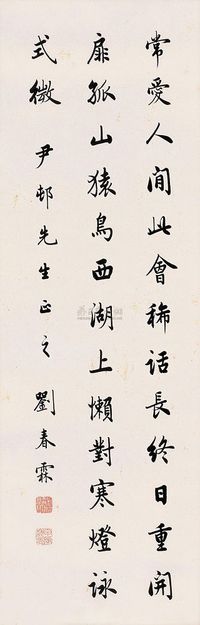 常愛人間此會稀話長終日重開
扉孤山猿鳥西湖上懶對寒燈詠
式微 尹邨先生正之 劉春霖